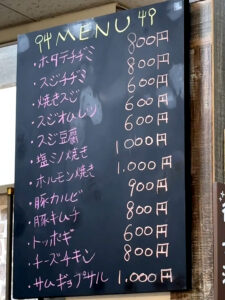 94 MENU 49
・ホタテチヂミ 800円
・スジチヂミ 800円
・焼きスジ 600円
・スジオムレツ 600円
・スジ豆腐 600円
・塩ミノ焼き 1,000円
・ホルモン焼き 1,000円
・豚カルビ 900円
・豚キムチ 800円
・トッポギ 600円
・チーズチキン 800円
・サムギョプサル 1,000円